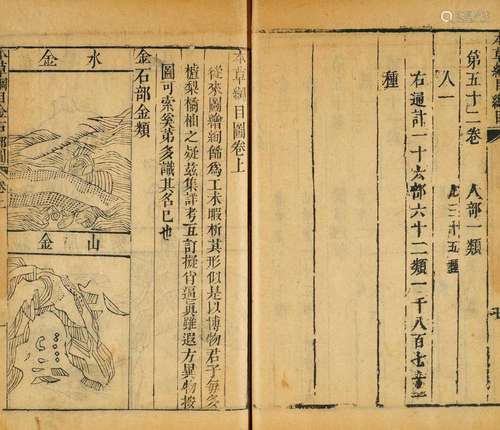 本草綱目總目
第五十二卷 人部一類
人一 凡三十五種
右通計一十六部六十二類一千八百七十
種
本草綱目圖卷上
從來圖繪絢飾為工未暇析其形似是以博物君子每多
植棃橘柚之疑茲集詳考互訂擬肖逼真雖遐方異物按
圖可索奚第多識其名已也
金石部金類
水金
山金
本草綱目金石部圖 卷上